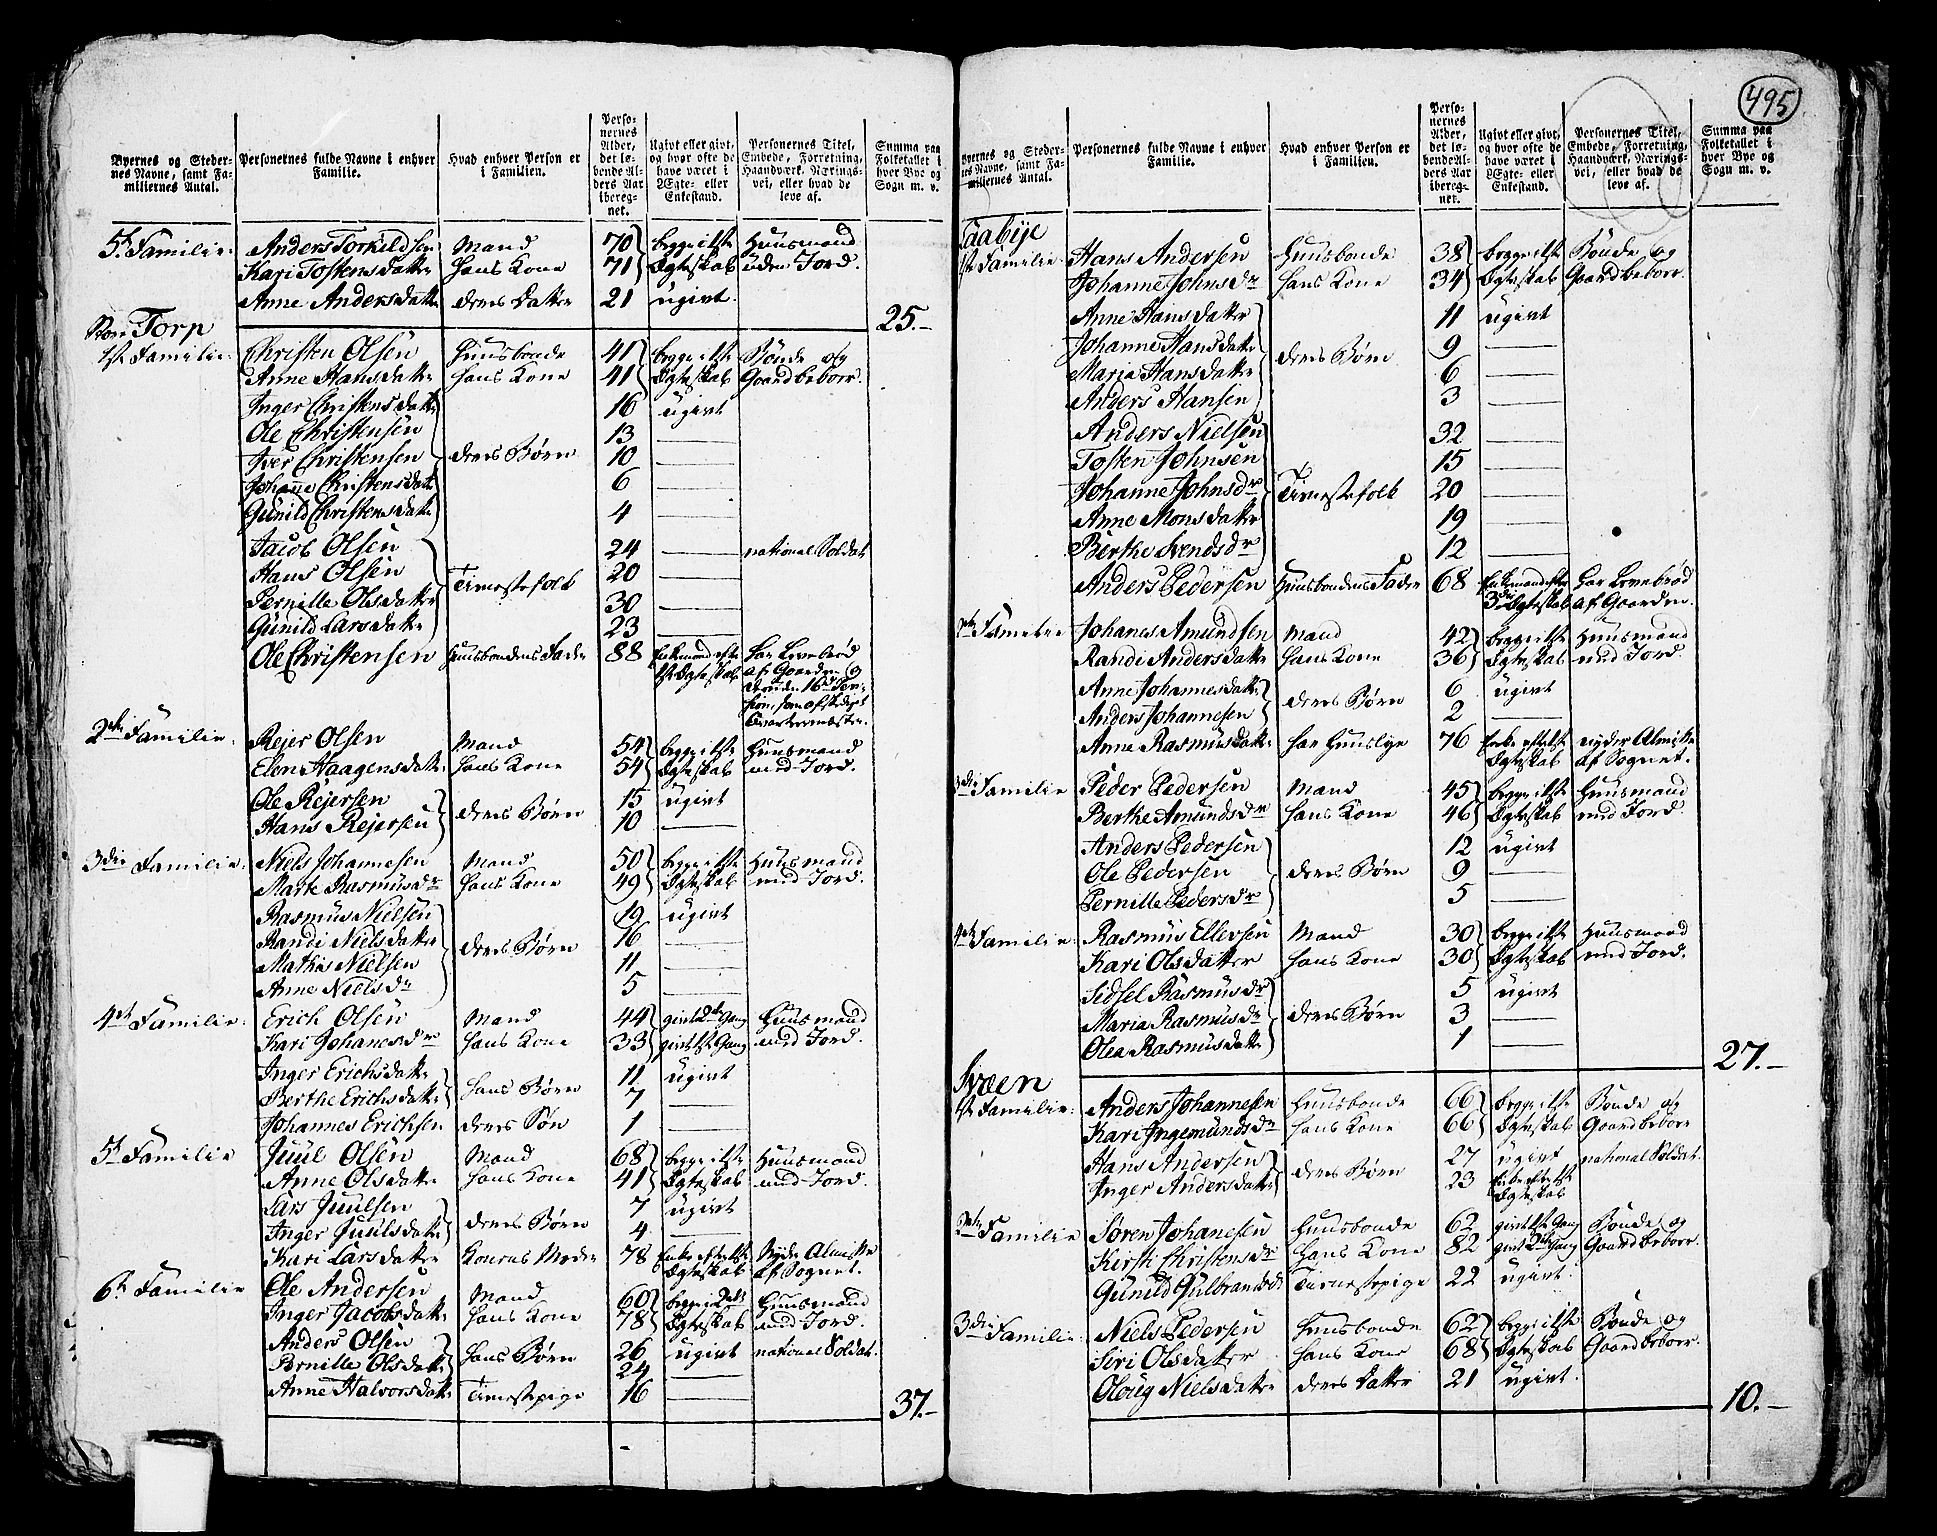 495
Byernes og Steder-
nes Navne, samt Fa-
miliernes Antal.
Personernes fulde Navne i enhver
Familie.
Hvad enhver Person er
i Familien.
Perso-
nernes
Alder,
det lø-
bende Al-
ders Aar
iberegnet.
Ugivt eller givt,
og hvor ofte de
have været i
Ægte- eller
Enkestand.
Personernes Titel,
Embede, Forretning,
Haandværk, Nærings-
vei, eller hvad de
leve af.
Summa paa
Folketallet i
hver Bye og
Sogn m. v.
5t Familie. Anders Torkildsen Mand 70 begge i 1ste Huusmand
Kari Tostensdatter hans Kone 71 Ægteskab uden Jord.
Anne Andersdatter deres Datter 21 ugivt
25.
Torp
1st Familie. Christen Olsen Huusbonde 41 begge i 1ste Bonde og
Anne Hansdatter hans Kone 41 Ægteskab Gaardbeboer.
Inger Christensdatter 16 ugivt
Ole Christensen 13
Iver Christensen deres Børn 10
Johanne Christensdatter 6
Gunild Christensdatter 4
Jacob Olsen 24 national Soldat
Hans Olsen Tienestefolk 20
Pernille Olsdatter 30
Gunild Larsdatter 23
Ole Christensen Huusbondens Fader 88 Enkemand efter har Levebrød
1st Ægteskab af Gaarden
2den Familie. Rejer Olsen Mand 54 begge i 1ste Huusmand
Elen Haagensdatter hans Kone 54 Ægteskab med Jord.
Ole Rejersen deres Børn 15 ugivt
Hans Rejersen 10
3die Familie. Niels Johannesen Mand 50 begge i 1ste Huusmand
Marte Rasmusdr hans Kone 49 Ægteskab med Jord.
Rasmus Nielsen 19 ugivt
Randi Nielsdatter deres Børn 16
Mathis Nielsen 11
Anne Nielsdr 5
4de Familie. Erich Olsen Mand 44 givt 2den Gang Huusmand
Kari Johanesdr hans Kone 33 givt 1st Gang med Jord.
Inger Erichsdatter hans Børn 11 ugivt
Berthe Erichsdatter 7
Johannes Erichsen deres Søn 1
5t Familie Juul Olsen Mand 68 begge i 1ste Huusmand
Anne Olsdatter hans Kone 41 Ægteskab med Jord.
Lars Juulsen deres Børn 7 ugivt
Inger Juulsdatter 4
Kari Larsdatter Konens Moder 78 Enke efter 1ste Nyder Almisse
Ægteskab af Sognet.
6t Familie Ole Andersen Mand 60 begge i Huusmand
Inger Jacobsdatter hans Kone 78 Ægteskab med Jord.
Anders Olsen hans Børn 26 ugivt national Soldat
Pernille Olsdatter 24
Anne Halvorsdatter Tienestepige 16
37.
Byernes og Steder-
nes Navne, samt Fa-
miliernes Antal.
Personernes fulde Navne i enhver
Familie.
Hvad enhver Person er
i Familien.
Perso-
nernes
Alder,
det lø-
bende Al-
ders Aar
iberegnet.
Ugivt eller givt,
og hvor ofte de
have været i
Ægte- eller
Enkestand.
Personernes Titel,
Embede, Forretning,
Haandværk, Nærings-
vei, eller hvad de
leve af.
Summa paa
Folketallet i
hver Bye og
Sogn m. v.
1st Familie. Hans Andersen Huusbonde 38 begge i 1ste Bonde og
Johanne Johnsdr hans Kone 34 Ægteskab Gaardbeboer.
Anne Hansdatter 11 ugivt
Johanne Hansdatter deres Børn 9
Maria Hansdatter 6
Anders Hansen 3
Anders Nielsen 32
Tosten Johnsen 15
Johanne Johnsdr Tienestefolk 20
Anne Monsdatter 19
Berthe Svendsdr 12
Anders Pedersen Huusbondens Fader 68 Enkemand efter har Levebrød
3die Ægteskab af Gaarden.
2den Familie Johanes Amundsen Mand 42 begge i 1ste Huusmand
Randi Andersdatter hans Kone 36 Ægteskab med Jord.
Anne Johannesdatter deres Børn 6 ugivt
Anders Johannesen 2
Anne Rasmusdatter 76 Enke efter 1ste nyder Almisse
Ægteskab af Sognet.
3die Familie Peder Pedersen Mand 45 begge i 1ste Huusmand
Berthe Amundsdr hans Kone 46 Ægteskab med Jord.
Anders Pedersen 12 ugivt
Ole Pedersen deres Børn 9
Pernille Pedersdr 5
4de Familie. Rasmus Ellersen Mand 30 begge i 1ste Huusmand
Kari Olsdatter hans Kone 30 Ægteskab med Jord.
Sidsel Rasmusdr 5 ugivt
Maria Rasmusdr deres Børn 3
Olea Rasmusdatter 1
27.
Sveen
1st Familie. Anders Johannesen Huusbonde 66 begge i 1ste Bonde og
Kari Ingemundsdr hans Kone 66 Ægteskab Gaardbeboer
Hans Andersen deres Børn 27 ugivt national Soldat.
Inger Andersdatter 23 Enke efter 1st
Ægteskab
2den Familie Søren Johanesen Huusbonde 62 givt 1st Gang Bonde og
Kirsti Christensdr hans Kone 82 givt 2den Gang Gaardbeboer.
Gunild Gulbrandsdr Tienestepige 22 ugivt.
3die Familie. Niels Pedersen Huusbonde 62 begge i 1ste Bonde og
Siri Olsdatter hans Kone 68 Ægteskab Gaardbeboer.
Oloug Nielsdatter deres Datter 21 ugivt.
10.